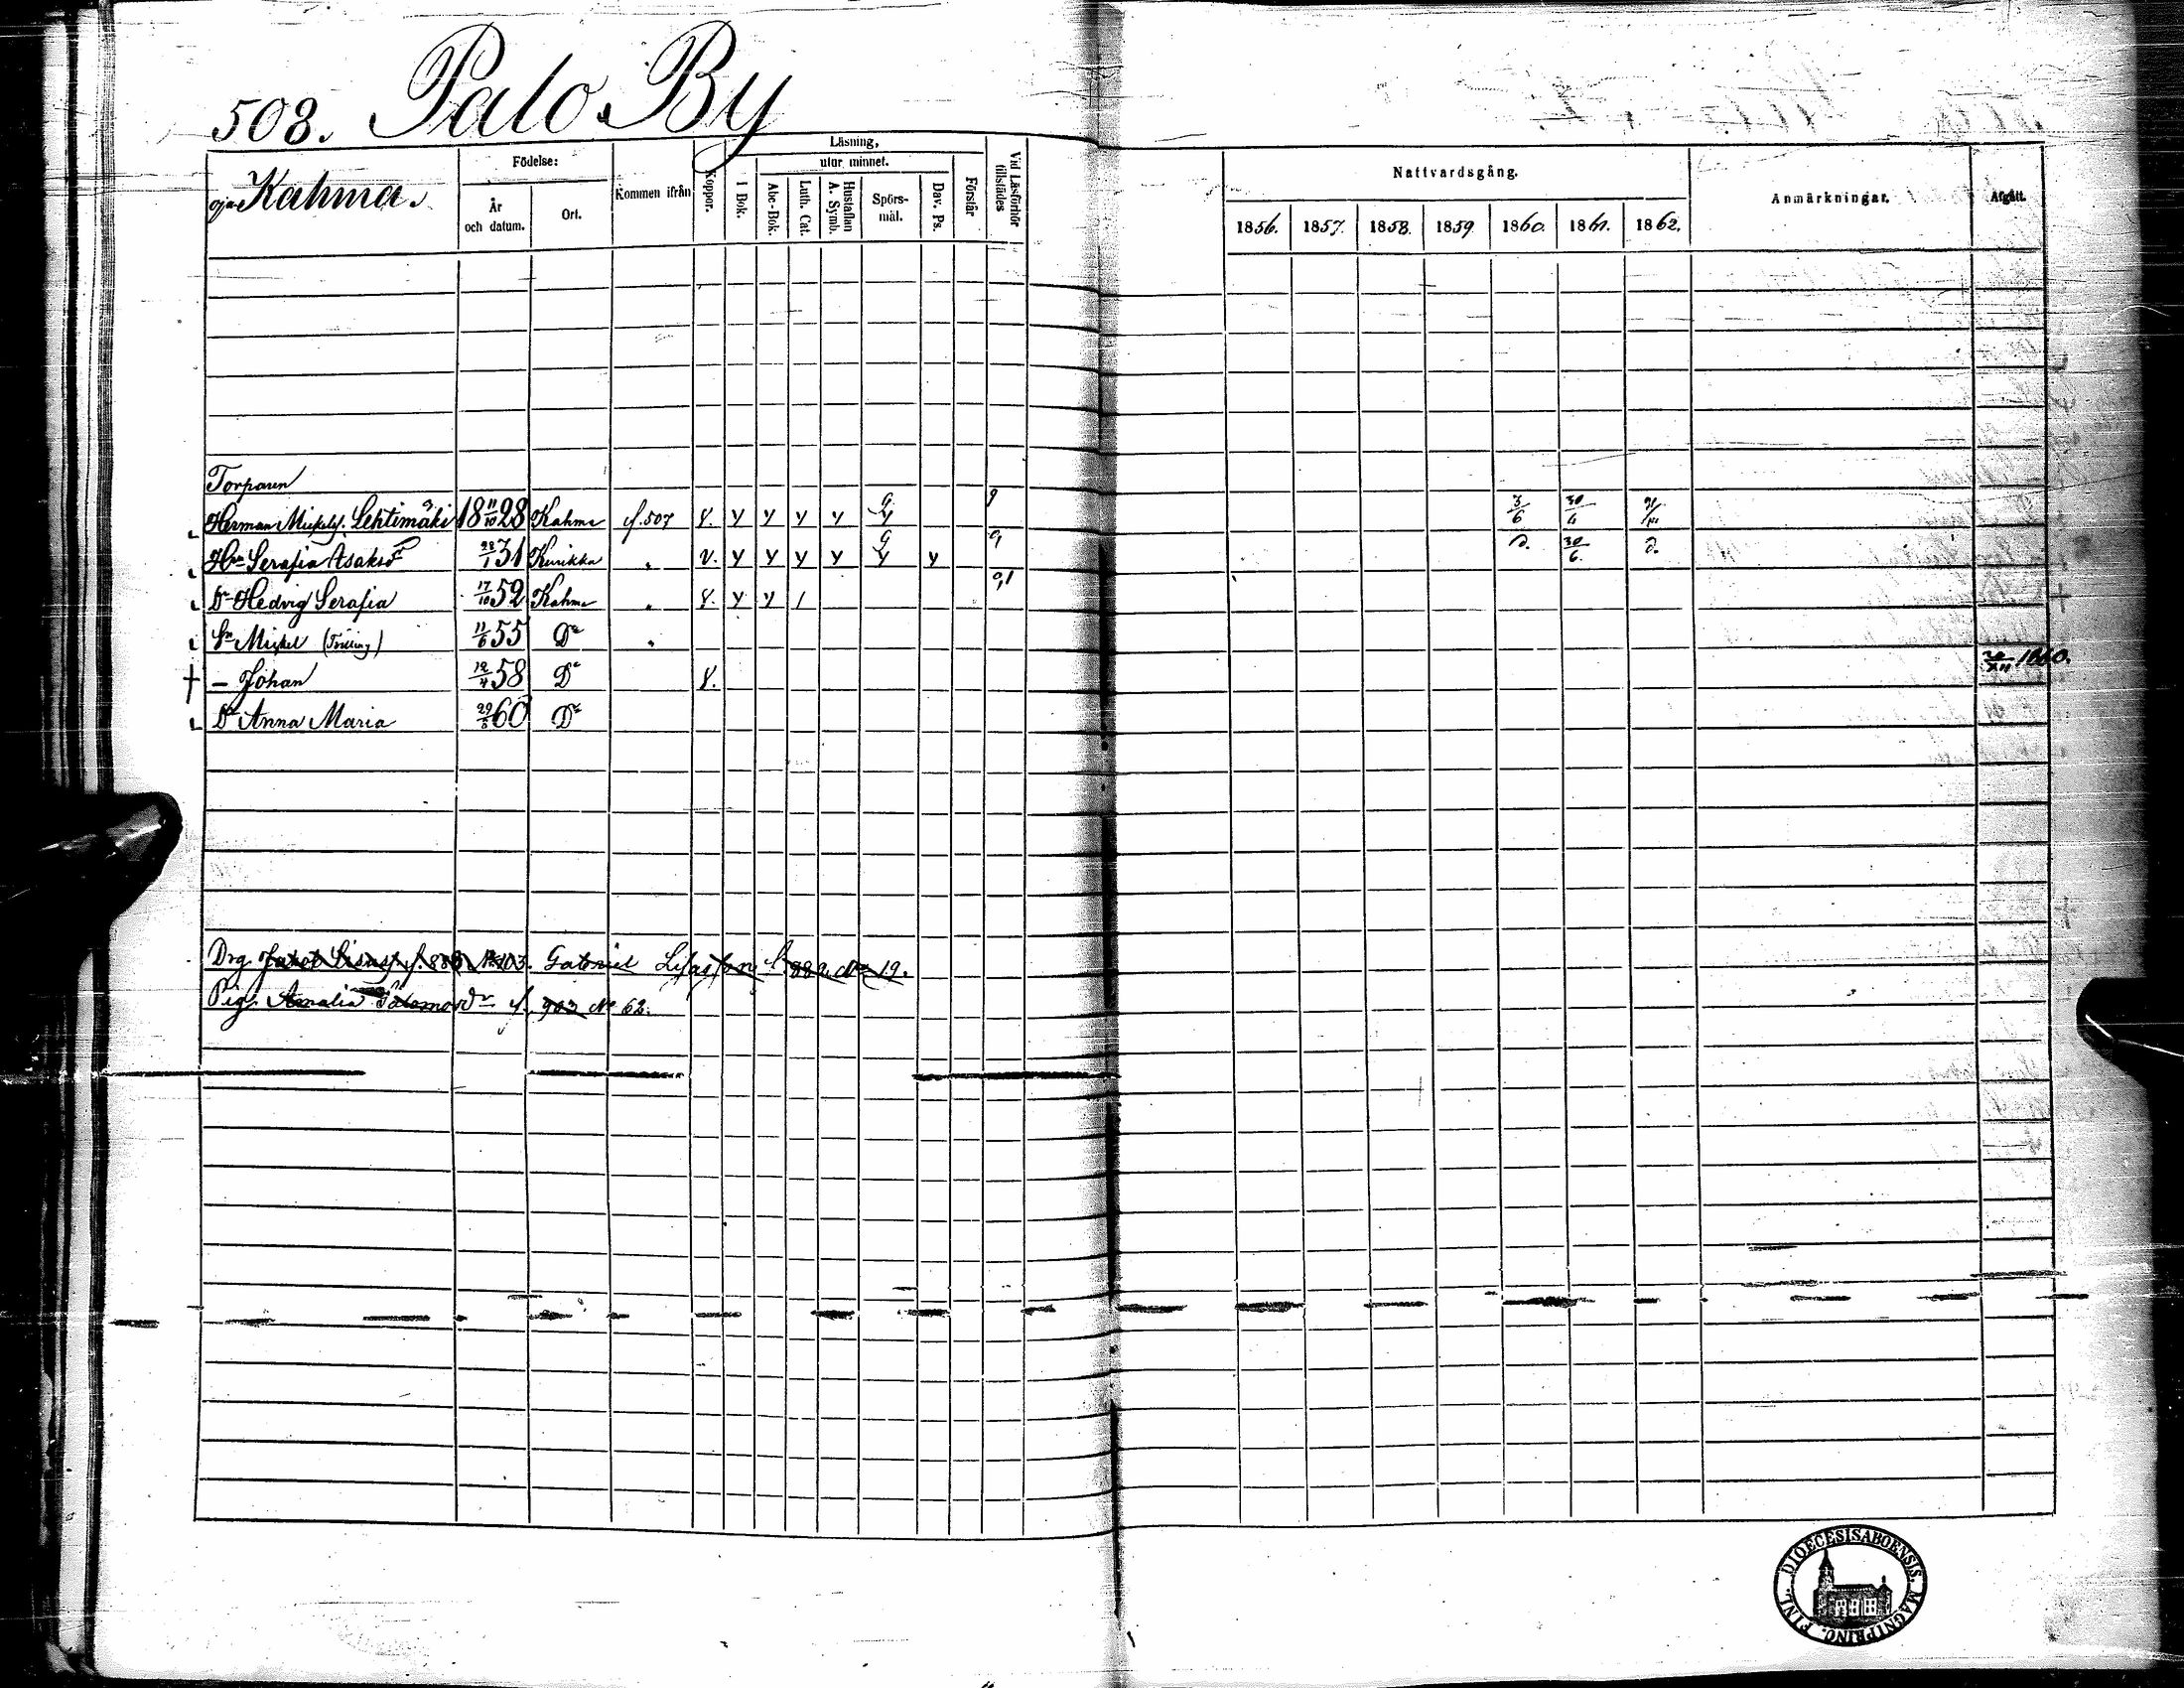 508. Palo By
Kahma.
Födelse:
År och datum.
Ort.
Kommen ifrån
Koppor.
Läsning,
I Bok.
utur minnet.
Abc-Bok.
Luth. Cat.
Hustaflan A. Symb.
Spörsmål.
Dav. Ps.
Förstår
Vid Läsförhör tillstädes
Nattvardsgång.
1856. 1857. 1858. 1859 1860. 1861. 1862.
Anmärkningar.
Afgått.
Torparen
Herman Mickelss. Lehtimäki 18 11/10 28 Kahma f. 507 v. y y y y 3/6 30/6
Hu Serafia Isaksdr 31 Kurikka v. y y y y y y 30/6.
Dr Hedvig Serafia 17/10 52 Kahma v. y y /
Sn Mickel (Tvilling) 11/6 55 Do
– Johan 12/4 58 Do v. 1860.
Dr Anna Maria 60 Do
Drg. No 103. Gabriel No 19.
Pig. Amalia f. No 62.
DIOECESIS ABOENSIS. MAGNI PRINC. FINL.